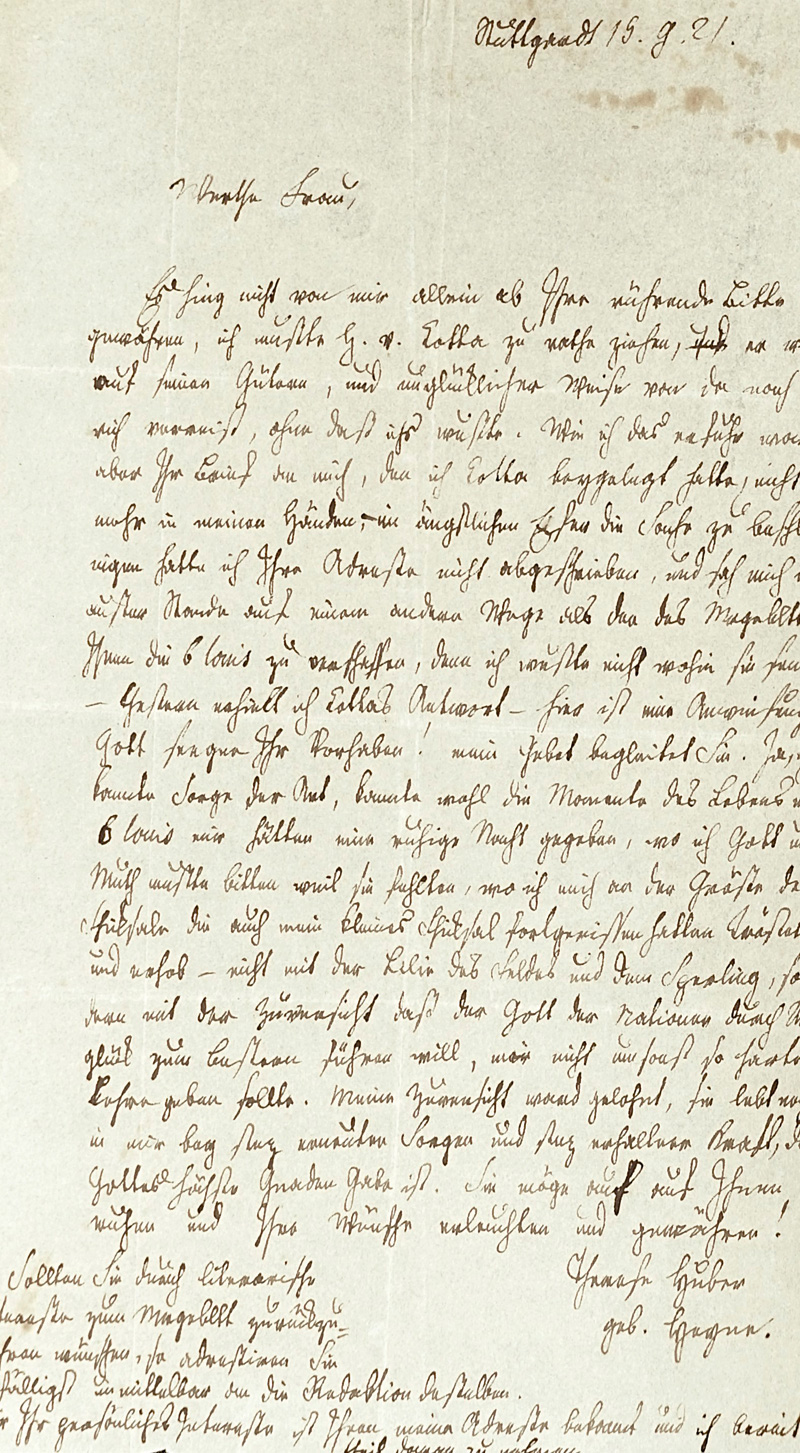 Stuttgardt 15. 9. 21.
Werthe Frau,
Es hing nicht von mir allein ab Ihre rührende Bitte
gewähren, ich mußte H. v. Cotta zu rathe ziehen, er
auf seinen Gütern, und unglücklicher Weise von da nach
verreist, ohne daß ichs wußte. Wie ich das erfuhr war
aber Ihr Brief an mich, den ich Cotta beygelegt hatte, nicht
mehr in meinen Händen, im ängstlichen Eifer die Sache zu beschl
nigen hatte ich Ihre Adresse nicht abgeschrieben, und sah mich
auster Stande auf einem andern Wege als den des Mrgbltts
Ihnen die 6 louis zu verschaffen, denn ich wußte nicht wohin sie sen
– Gestern erhielt ich Cottas Antwort – hier ist eine Anweisung
Gott seegne Ihr Vorhaben! mein Gebet begleitet Sie. Ja,
kannte Sorge der Art, kannte wohl die Momente des Lebens
6 louis mir hätten eine ruhige Nacht gegeben, wo ich Gott
Muth mußte bitten weil sie fehlten, wo ich mich an der Größe de
Schiksale die auch mein kleines Schiksal fortgerissen hatten tröstet
und erhob – nicht mit der Lilie des Feldes und dem Sperling, so
dern mit der Zuversicht daß der Gott der Nationen durch
glük zum Bestern führen will, mir nicht umsonst so harte
Lehre geben sollte. Meine Zuversicht ward gelohnt, sie lebt
in mir bey stez erneuten Sorgen und stez erhaltner Kraft, d
Gottes höchste Gnaden Gabe ist. Sie möge auch auf Ihnen
ruhen und Ihre Wünsche erleuchten und gewähren!
Therese Huber
geb. Heyne.
Sollten Sie durch literarische
zum Mrgbltt zurückzu=
wünschen, so adressiren Sie
fälligst unmittelbar an die Redaktion desselben.
Ihr persönliches Interesse ist Ihnen meine Adresse bekannt und ich bereit
theil daran zu nehmen